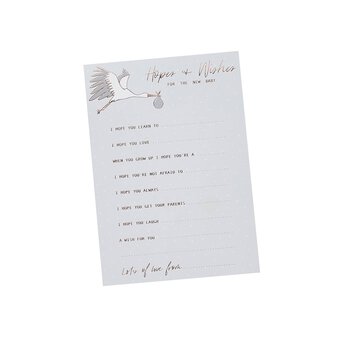 Hopes & Wishes
FOR THE NEW BABY
I HOPE YOU LEARN TO
I HOPE YOU LOVE
WHEN YOU GROW UP I HOPE YOU'RE A
I HOPE YOU'RE NOT AFRAID TO
I HOPE YOU ALWAYS
I HOPE YOU GET YOUR PARENTS
I HOPE YOU LAUGH
A WISH FOR YOU
Lots of love from